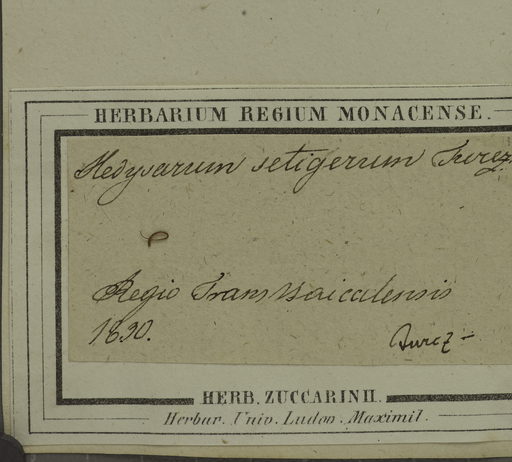 HERBARIUM REGIUM MONACENSE.
Hedysarum setigerum Turcz.
Regio Transbaicalensis
1830.
Turcz
HERB. ZUCCARINII.
Herbar. Univ. Ludov. Maximil.